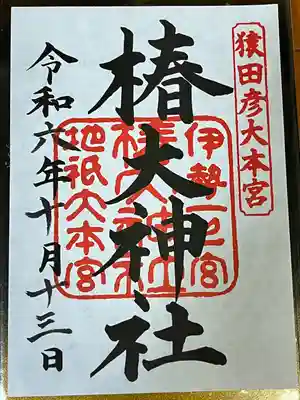 猿田彦大本宮
伊勢一之宮
椿大神社
地祇大本宮
令和六年十月十三日